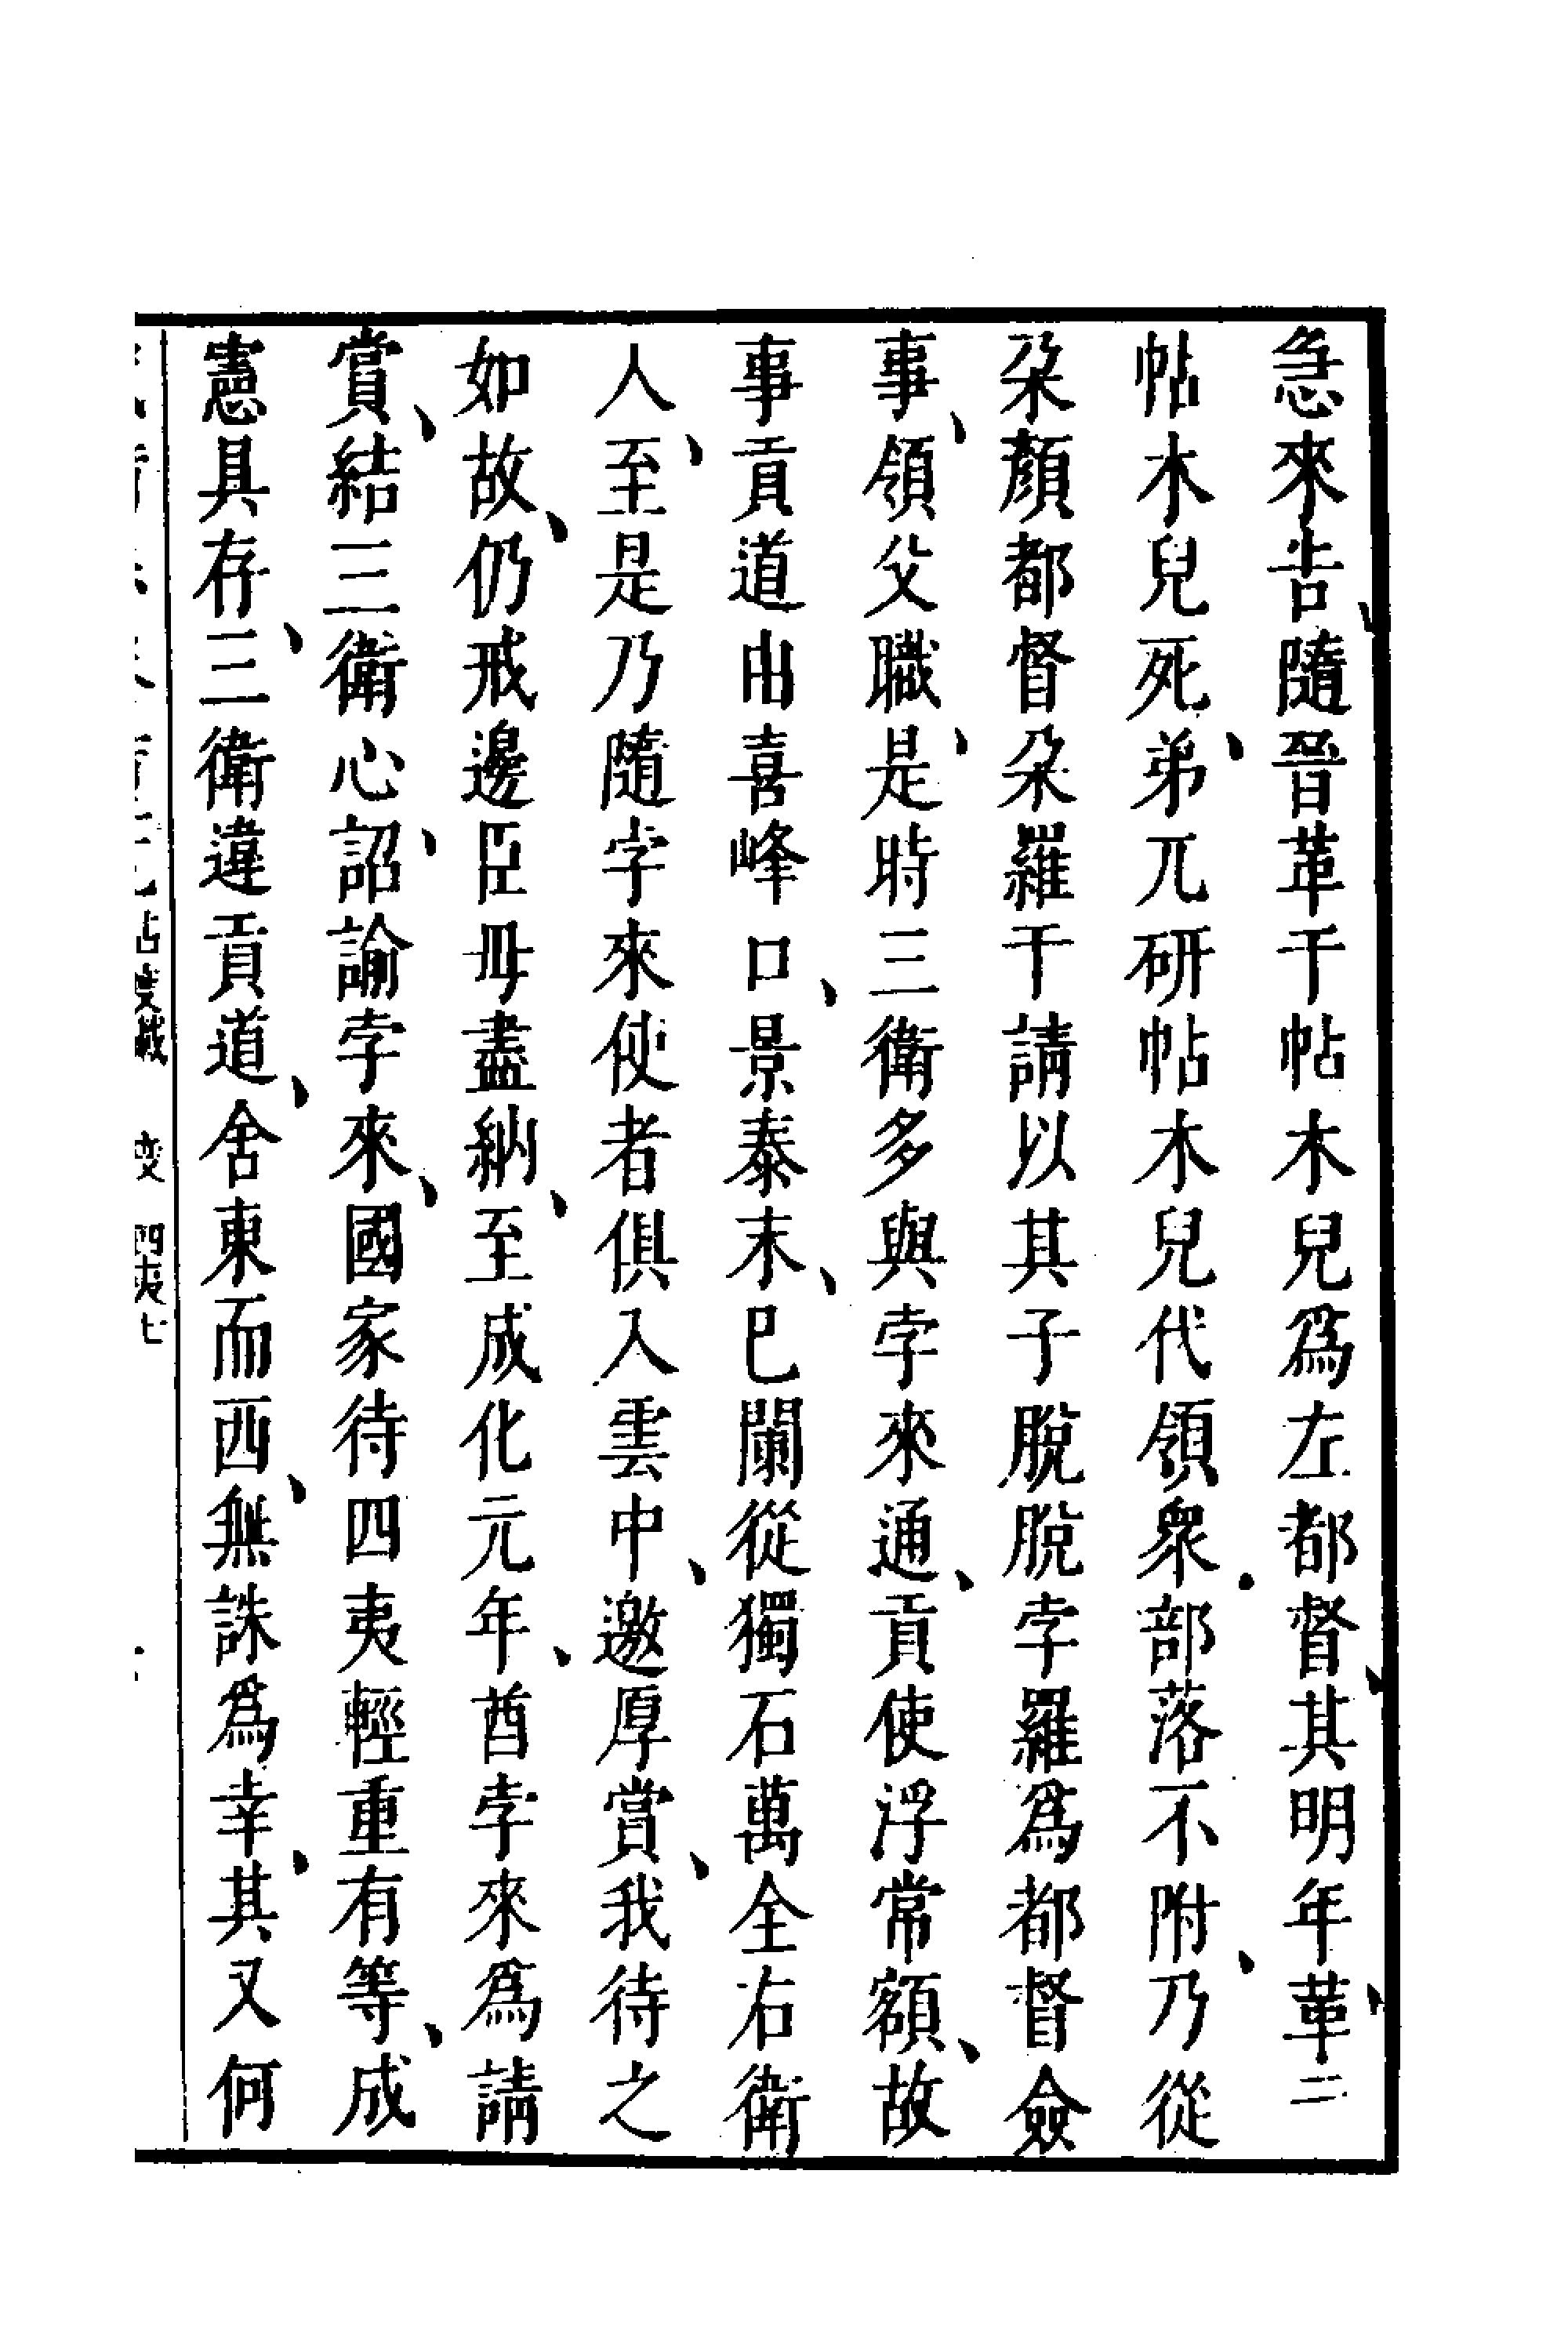 急來告隨晉革干帖木兒爲左都督、其明年革、干
帖木兒死、弟兀研帖木兒代領衆。部落不附、乃從
朶顏都督朶羅干請以其子脫脫孛羅爲都督僉
事、領父職、是時三衛多與孛來通、貢使浮常額、故
事貢道由喜峰口、景泰末、巳闌從獨石萬全右衛
人、至是乃隨孛來使者俱入雲中、邀厚賞、我待之
如故、仍戒邊臣毋盡納、至成化元年、酋孛來爲請
賞、結三衛心、詔諭孛來、國家待四夷輕重有等、成
憲具存、三衛違貢道、舍東而西、無誅爲幸、其又何
四夷七